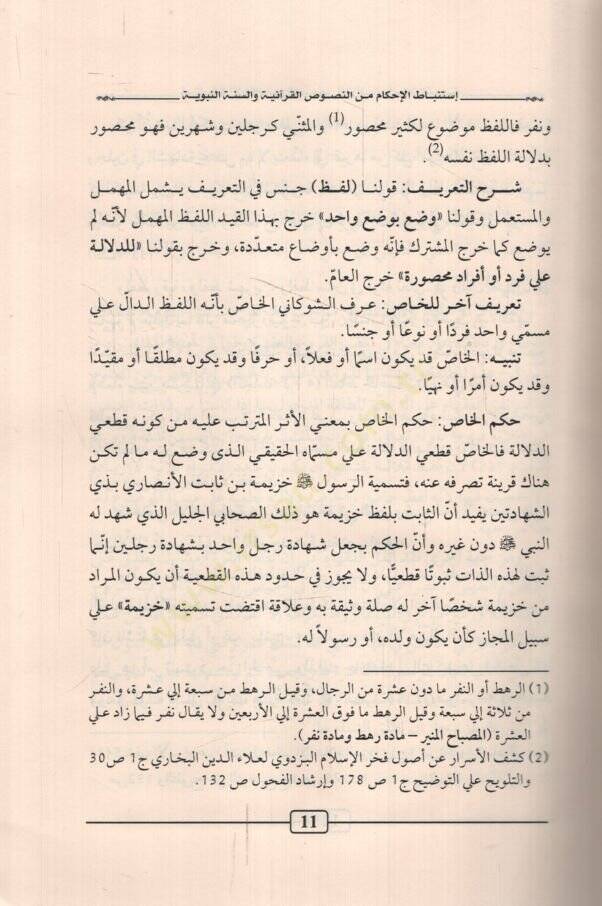 إستنباط الإحكام من النصوص القرآنية والسنة النبوية
ونفر فاللفظ موضوع لكثير محصور(1) والمثنّي كرجلين وشهرين فهو محصور
بدلالة اللفظ نفسه(2).
شرح التعريف: قولنا (لفظ) جنس في التعريف يشمل المهمل
والمستعمل وقولنا «وضع بوضع واحد» خرج بهذا القيد اللفظ المهمل لأنه لم
يوضع كما خرج المشترك فإنّه وضع بأوضاع متعدّدة، وخرج بقولنا «للدلالة
علي فرد أو أفراد محصورة» خرج العامّ.
تعريف آخر للخاص: عرف الشوكاني الخاصّ بأنّه اللفظ الدالّ علي
مسمّي واحد فردًا أو نوعًا أو جنسًا.
تنبيه: الخاصّ قد يكون اسمًا أو فعلاً، أو حرفًا وقد يكون مطلقًا أو مقيّدًا
وقد يكون أمرًا أو نهيًا.
حكم الخاص: حكم الخاص بمعني الأثر المترتب عليه من كونه قطعي
الدلالة فالخاصّ قطعي الدلالة علي مسمّاه الحقيقي الذى وضع له ما لم تكن
هناك قرينة تصرفه عنه، فتسمية الرسول ﷺ خزيمة بن ثابت الأنصاري بذي
الشهادتين يفيد أنّ الثابت بلفظ خزيمة هو ذلك الصحابي الجليل الذي شهد له
النبي ﷺ دون غيره وأنّ الحكم بجعل شهادة رجل واحد بشهادة رجلين إنّما
ثبت لهذه الذات ثبوتًا قطعيًّا، ولا يجوز في حدود هذه القطعية أن يكون المراد
من خزيمة شخصًا آخر له صلة وثيقة به وعلاقة اقتضت تسميته «خزيمة» علي
سبيل المجاز كأن يكون ولده، أو رسولاً له.
(1) الرهط أو النفر ما دون عشرة من الرجال، وقيل الرهط من سبعة إلي عشرة، والنفر
من ثلاثة إلي سبعة وقيل الرهط ما فوق العشرة إلي الأربعين ولا يقال نفر فيما زاد علي
العشرة (المصباح المنير – مادة رهط ومادة نفر).
(2) كشف الأسرار عن أصول فخر الإسلام البزدوي لعلاء الدين البخاري ج1 ص30
والتلويح علي التوضيح ج1 ص 178 وإرشاد الفحول ص 132.
11